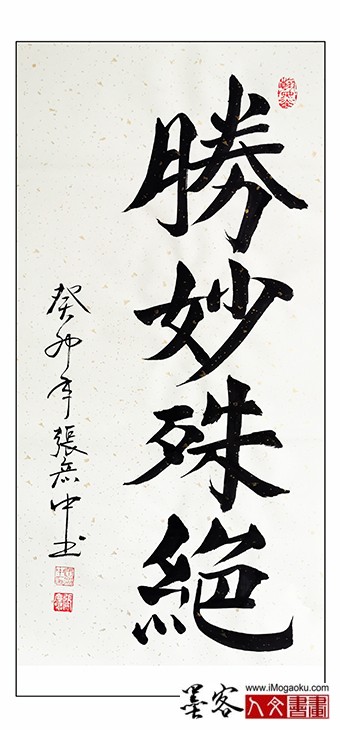 勝妙殊絶
癸卯年張中书
墨客
www.iMogaoku.com
人文書畫